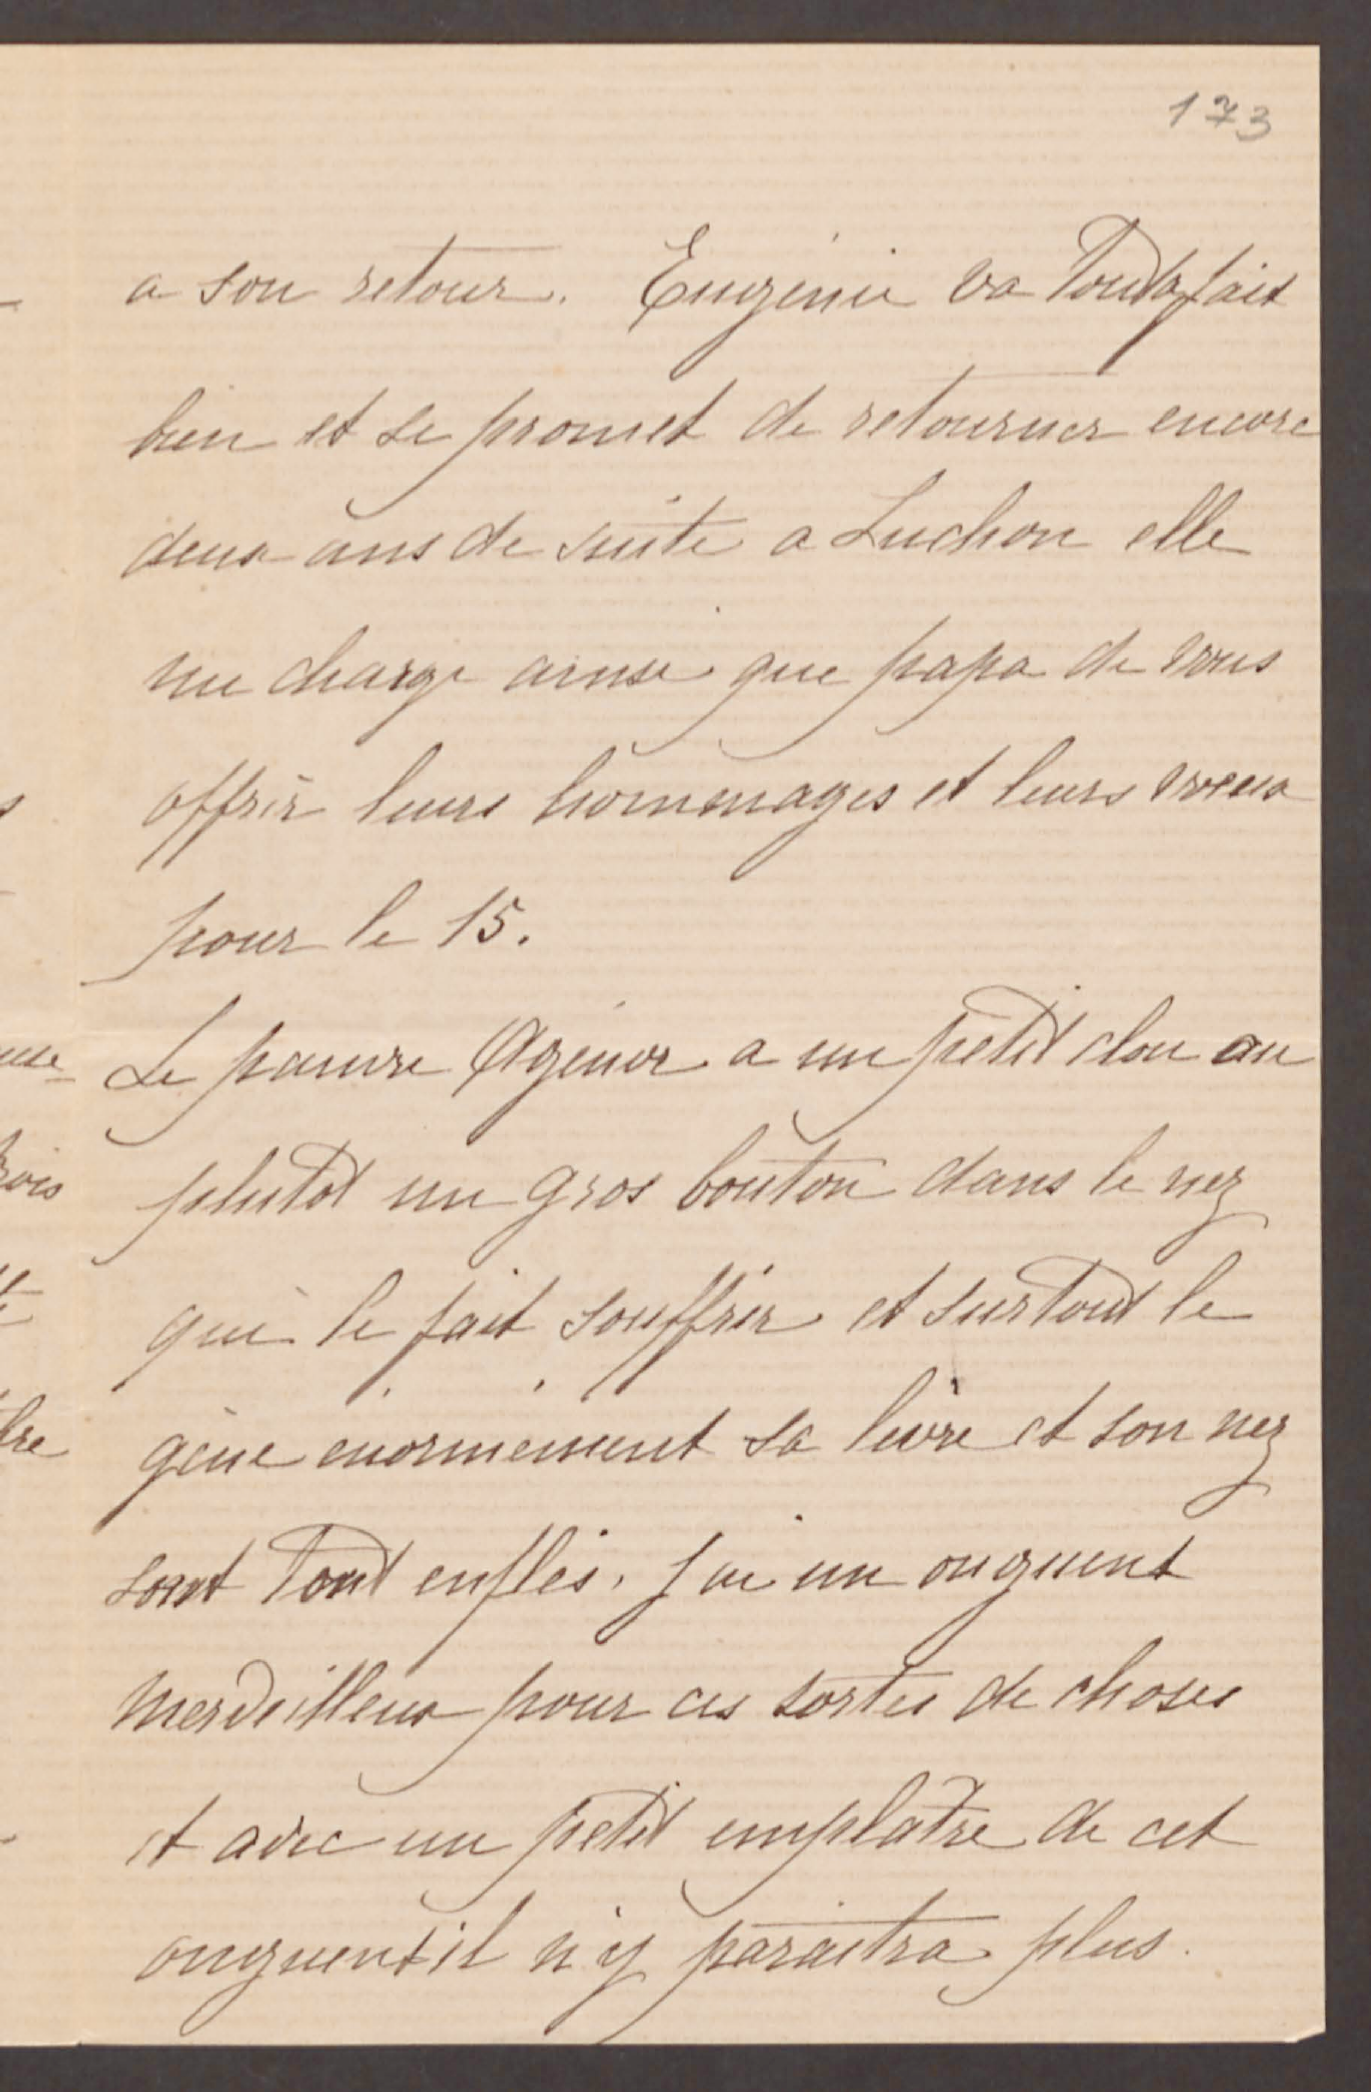 173
a son retour. Eugénie va tout a fait
bien et se promet de retourner encore
deux ans de suite a Luchon elle
me charge ainsi que papa de vous
offrir leurs hommages et leurs voeux
pour le 15.
Le pauvre Agénor a un petit clou ou
plutot un gros bouton dans le nez
qui le fait souffrir et surtout le
gène enormement sa levre et son nez
sont tout enflés. J'ai un onguent
merveilleux pour ces sortes de choses
et avec un petit emplatre de cet
onguent il n'y paraitra plus.